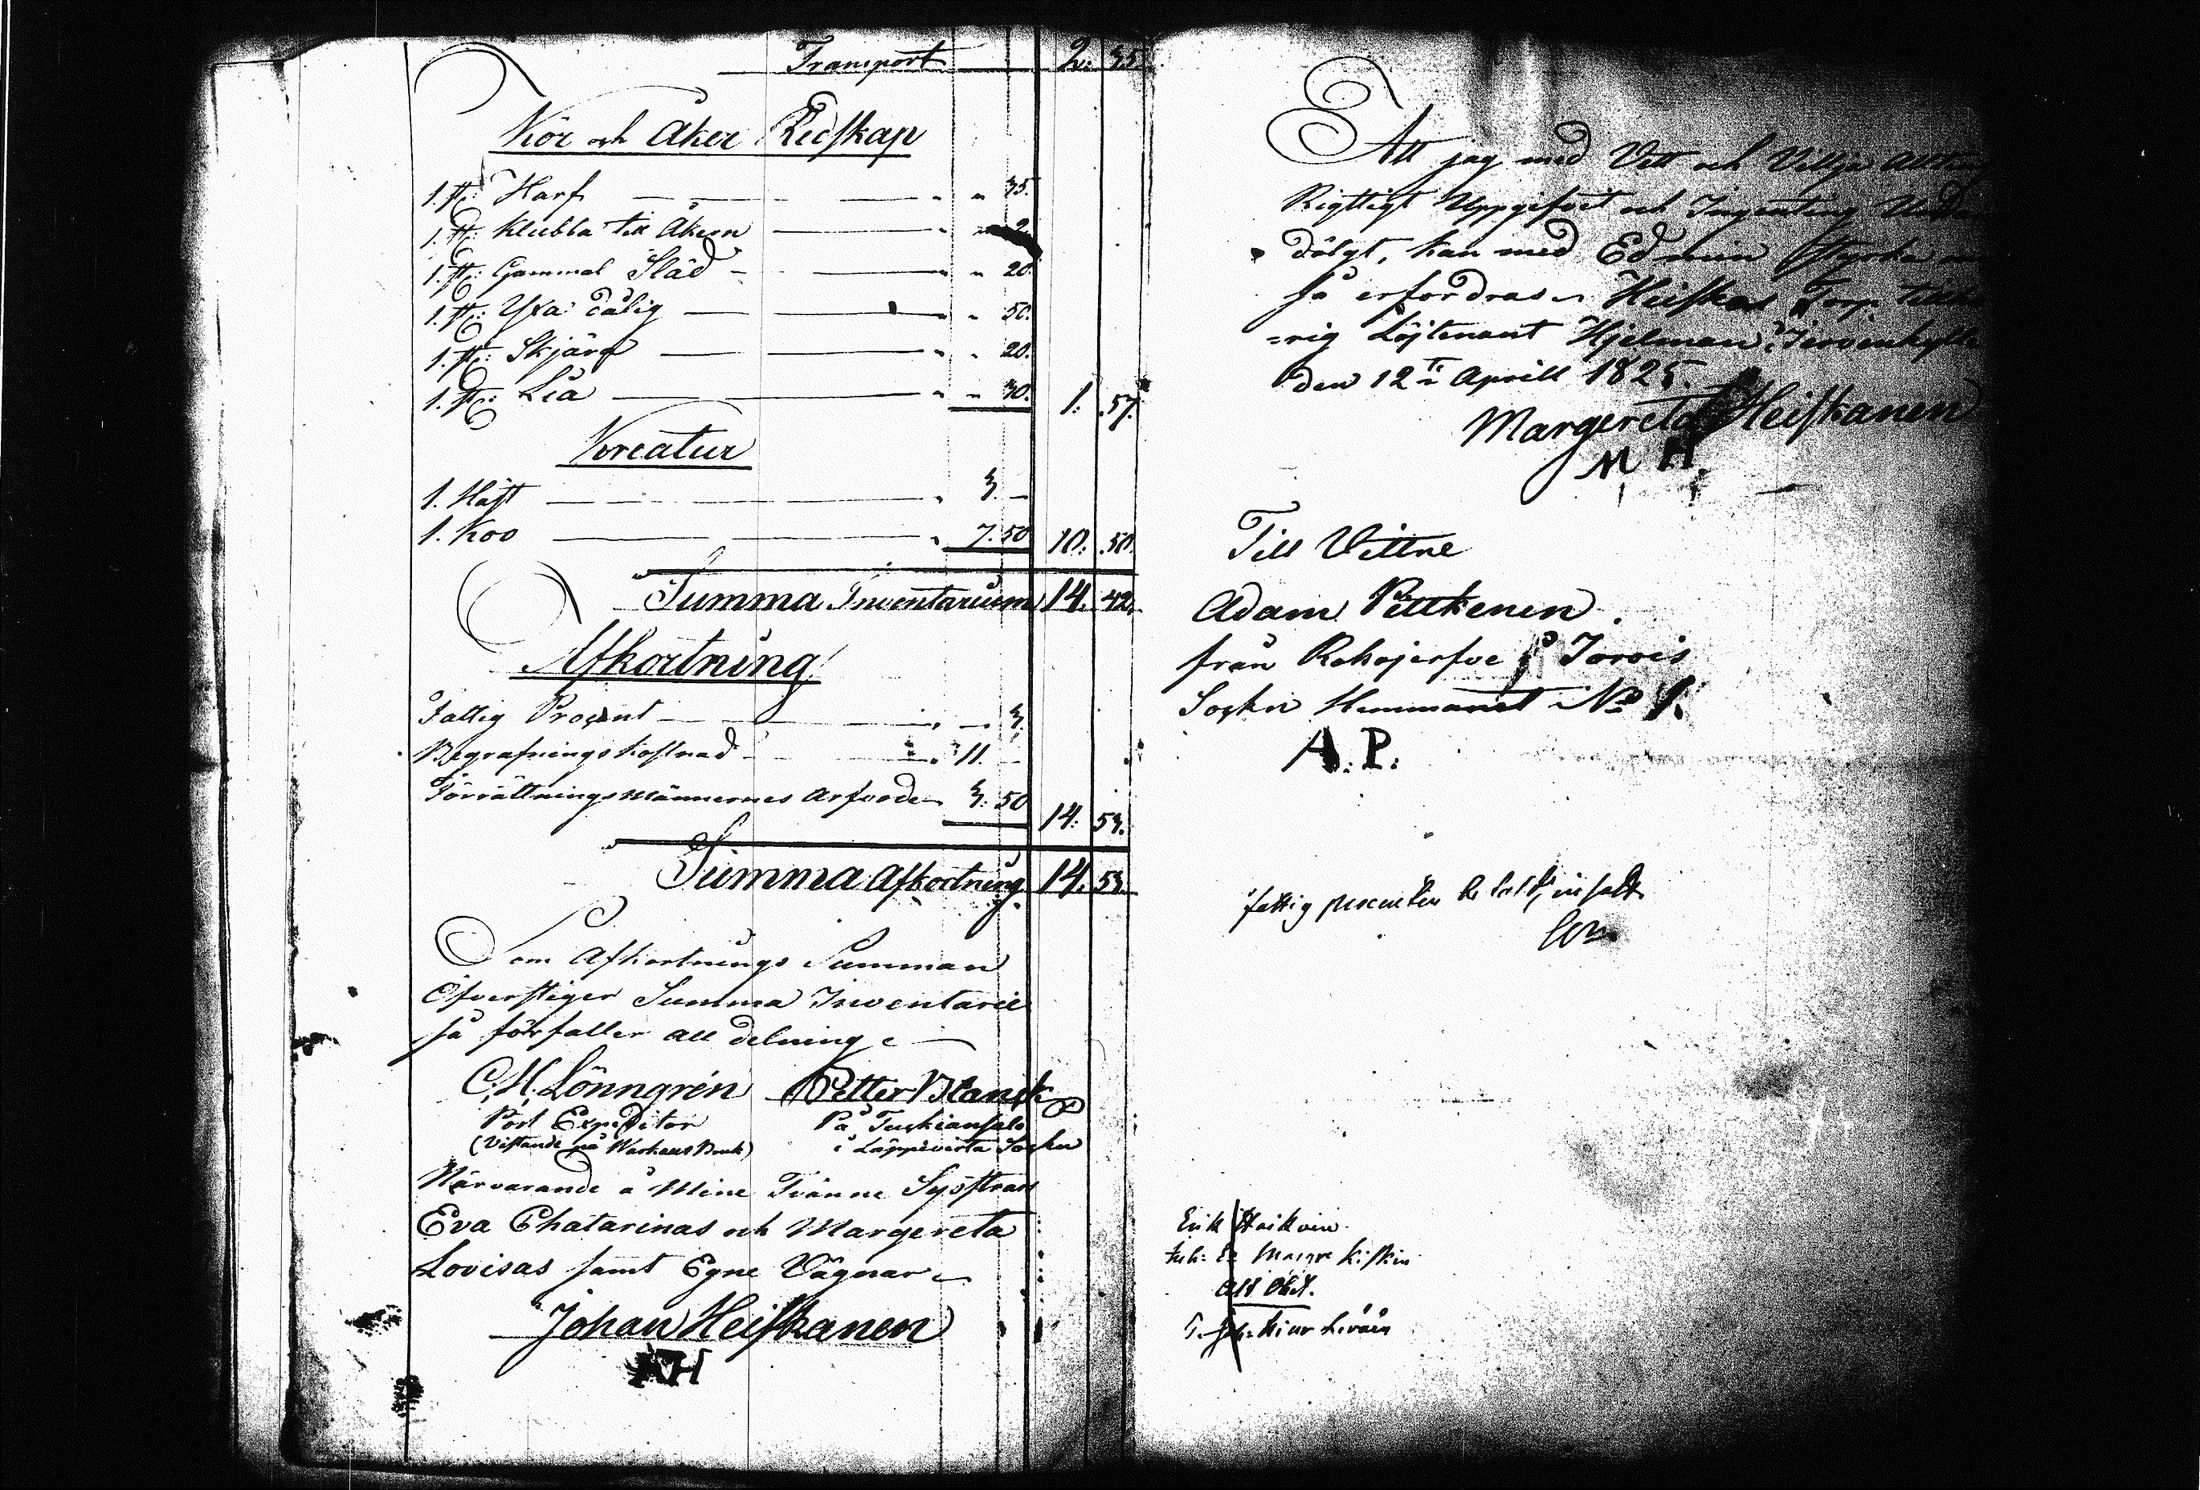 Transport 2. 35.
Kör och Åker Redskap
1. st: Harf " " 35.
1. st: Klubba till Åkern " " 2.
1. st: Gammal Släd " " 20.
1. st: Yxa dålig " " 50.
1. st: Skjära " " 20.
1. st: Lia " " 30. 1. 57.
Kreatur
1. Häst " 3. —
1. Koo " 7. 50 10. 50.
Summa Inventarium 14. 42.
Afkortning
Fattig Procent " — 3.
Begrafnings Kostnad " 11. —
Förrättningsmännernes Arfvode 3. 50 14. 53.
Summa Afkortning 14. 53.
Som Afkortnings Summan
Öfverstiger Summa Inventarie
så förfaller all delning
C. H. Lönngrén Petter Blanck
Post Expeditor På Tuskiansalo
(Vistande på Warkaus Bruk) i Läppävirta Sockn
Närvarande å Mine Tränne Systrars
Eva Chatarinas och Margereta
Lovisas samt Egne Vägnar
Johan Heiskanen
Att jag med Vett och Vilja
Rigttigt Uppgifvit och Ingenting
dölgt, kan med Ed min Styrka
så erfordras Heiskas Torp
=rig Löjtenant Hjelman i Jervenkylle
den 12 Aprill 1825.
Margereta Heiskanen
M H.
Till Vittne
Adam Pettkenen
från Rohojerfve i Jorois
Sockn Hemmanet No 1.
A. P.
fattig procenten
Erik